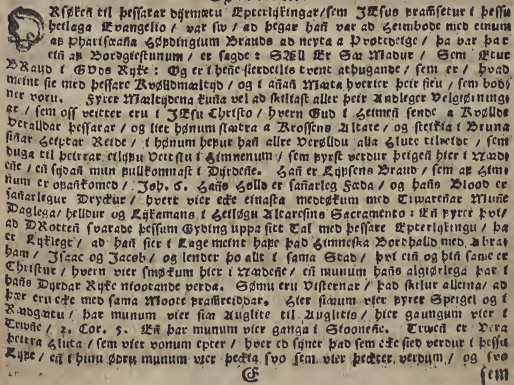 ORsøken til þessarar dyrmætu Epterlijkingar/sem JEsus framsetur i þessu
heilaga Evangelio / var sw / ad þegar han var ad Heimbode med einum
af Phariseana Høfdingium Braud ad neyta a Þvottdeige / þa var þar
ein af Bordgiestunum / er sagde: Sæll Er Sa Madur / Sem Etur
BRaud i GVds Ryke: Og er i heñe sierdeilis tvent athugande / sem er / hvad
meint sie med þessare Kvølldmæltijd / og i añañ Mata hverier þeir sieu / sem bod-
ner voru. Fyrer Mæltijdena kuña vel ad skiliast aller þeir Andleger Velgiørning-
ar / sem oss veitter eru i JEsu Christo / hvern Gud i Heimen sende a Kvølldi
Veralldar þessarar / og liet hønum slatra a Krossens Altare / og steikia i Bruna
siñar Heiptar Reide / i hønum hefur hañ allre Verølldu alla Hlute tilreidt / sem
duga til þeirrar eilijfu Veitslu i Himnenum / sem fyrst verdur þeigen hier i Naad-
eñe / eñ sijdan mun fullkomnast i Dyrdeñe. Hañ er Lijfsens Braud / sem af Himn-
inum er ofañkomed / Joh. 6. Hañs Holld er sañarleg Fæda / og hañs Blood er
sañarlegur Dryckur / hvert vier ecke einasta medtøkum med Trwareñar Muñe
Daglega/ helldur og Lijkamans i Heiløgu Alltaresins Sacramento: Eñ fyrer þvi/
ad DRotteñ svarade þessum Gyding uppa sitt Tal med þessare Epterlijkingu / þa
er Lijklegt / ad hañ sier i Lage meint hafe þad Himneska Bordhalld med Abra-
ham / Isaac og Jacob / og lender þo allt i sama Stad / þvi eiñ og hiñ same er
Christur / hvern vier smøkum hier i Naadeñe / eñ munum hañs algiørlega þar i
hañs Dyrdar Ryke niootande verda. Sømu eru Visternar / þad skilur alleina / ad
þær eru ecke med sama Moote framreiddar. Hier siaum vier fyrer Speigel og i
Raadgaatu / þar munum vier sia Auglite til Auglitis / hier gaungum vier i
Trwñe / 2. Cor. 5. Eñ þar munum vier ganga i Siooneñe. Trweñ er Vera
þeirra Hluta / sem vier vonum epter / hver ed syner þad sem ecke sied verdur i þessu
Lijfe / eñ i hinu ødru munum vier þeckia svo sem vier þeckter verdum / og svo
C sem